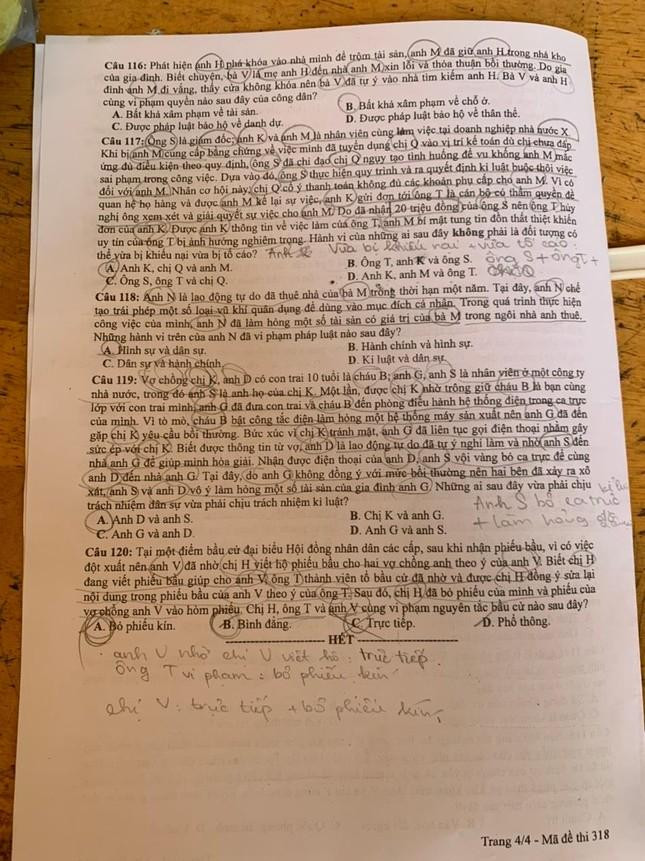 Câu 116: Phát hiện anh H phá khóa vào nhà mình để trộm tài sản, anh M đã giữ anh H trong nhà kho
của gia đình. Biết chuyện, bà V là mẹ anh H đến nhà anh M xin lỗi và thỏa thuận bồi thường. Do gia
đình anh M đi vắng, thấy cửa không khóa nên bà V đã tự ý vào nhà tìm kiếm anh H. Bà V và anh H
cùng vi phạm quyền nào sau đây của công dân?
A. Bất khả xâm phạm về tài sản. B. Bất khả xâm phạm về chỗ ở.
C. Được pháp luật bảo hộ về danh dự. D. Được pháp luật bảo hộ về thân thể.
Câu 117: Ông S là giám đốc; anh K và anh M là nhân viên cùng làm việc tại doanh nghiệp nhà nước X.
Khi bị anh M cung cấp bằng chứng về việc mình đã tuyển dụng chị Q vào vị trí kế toán dù chị chưa đáp
ứng đủ điều kiện theo quy định, ông S đã chỉ đạo chị Q ngụy tạo tình huống để vu khống anh M mắc
sai phạm trong công việc. Dựa vào đó, ông S thực hiện quy trình và ra quyết định kỉ luật buộc thôi việc
đối với anh M. Nhân cơ hội này, chị Q cố ý thanh toán không đủ các khoản phụ cấp cho anh M. Vì có
quan hệ họ hàng và được anh M kể lại sự việc, anh K gửi đơn tới ông T là cán bộ có thẩm quyền đề
nghị ông xem xét và giải quyết sự việc cho anh M. Do đã nhận 20 triệu đồng của ông S nên ông T hủy
đơn của anh K. Được anh K thông tin về việc làm của ông T, anh M bí mật tung tin đồn thất thiệt khiến
uy tín của ông T bị ảnh hưởng nghiêm trọng. Hành vi của những ai sau đây không phải là đối tượng có
thể vừa bị khiếu nại vừa bị tố cáo? Anh K Vừa bị khiếu nại + vừa tố cáo:
A. Anh K, chị Q và anh M. B. Ông T, anh K và ông S. ông S + ông T +
C. Ông S, ông T và chị Q. D. Anh K, anh M và ông T. chị Q
Câu 118: Anh N là lao động tự do đã thuê nhà của bà M trong thời hạn một năm. Tại đây, anh N chế
tạo trái phép một số loại vũ khí quân dụng để dùng vào mục đích cá nhân. Trong quá trình thực hiện
công việc của mình, anh N đã làm hỏng một số tài sản có giá trị của bà M trong ngôi nhà anh thuê.
Những hành vi trên của anh N đã vi phạm pháp luật nào sau đây?
A. Hình sự và dân sự. B. Hành chính và hình sự.
C. Dân sự và hành chính. D. Kỉ luật và dân sự.
Câu 119: Vợ chồng chị K, anh D có con trai 10 tuổi là cháu B; anh G, anh S là nhân viên ở một công ty
nhà nước, trong đó anh S là anh họ của chị K. Một lần, được chị K nhờ trông giữ cháu B là bạn cùng
lớp với con trai mình, anh G đã đưa con trai và cháu B đến phòng điều hành hệ thống điện trong ca trực
của mình. Vì tò mò, cháu B bật công tắc điện làm hỏng một hệ thống máy sản xuất nên anh G đã đến
gặp chị K yêu cầu bồi thường. Bức xúc vì chị K tránh mặt, anh G đã liên tục gọi điện thoại nhằm gây
sức ép với chị K. Biết được thông tin từ vợ, anh D là lao động tự do đã tự ý nghỉ làm và nhờ anh S đến
nhà anh G để giúp mình hòa giải. Nhận được điện thoại của anh D, anh S vội vàng bỏ ca trực để cùng
anh D đến nhà anh G. Tại đây, do anh G không đồng ý với mức bồi thường nên hai bên đã xảy ra xô
xát, anh S và anh D vô ý làm hỏng một số tài sản của gia đình anh G. Những ai sau đây vừa phải chịu
trách nhiệm dân sự vừa phải chịu trách nhiệm kỉ luật? Anh S bỏ ca trực
A. Anh D và anh S. B. Chị K và anh G. + làm hỏng
C. Anh G và anh D. D. Anh G và anh S.
Câu 120: Tại một điểm bầu cử đại biểu Hội đồng nhân dân các cấp, sau khi nhận phiếu bầu, vì có việc
đột xuất nên anh V đã nhờ chị H viết hộ phiếu bầu cho hai vợ chồng anh theo ý của anh V. Biết chị H
đang viết phiếu bầu giúp cho anh V, ông T thành viên tổ bầu cử đã nhờ và được chị H đồng ý sửa lại
nội dung trong phiếu bầu của anh V theo ý của ông T. Sau đó, chị H đã bỏ phiếu của mình và phiếu của
vợ chồng anh V vào hòm phiếu. Chị H, ông T và anh V cùng vi phạm nguyên tắc bầu cử nào sau đây?
A. Bỏ phiếu kín. B. Bình đẳng. C. Trực tiếp. D. Phổ thông.
HẾT
anh V nhờ chị V viết hộ: trực tiếp.
Ông T vi phạm: bỏ phiếu kín
chị V: trực tiếp + bỏ phiếu kín,
Trang 4/4 - Mã đề thi 318